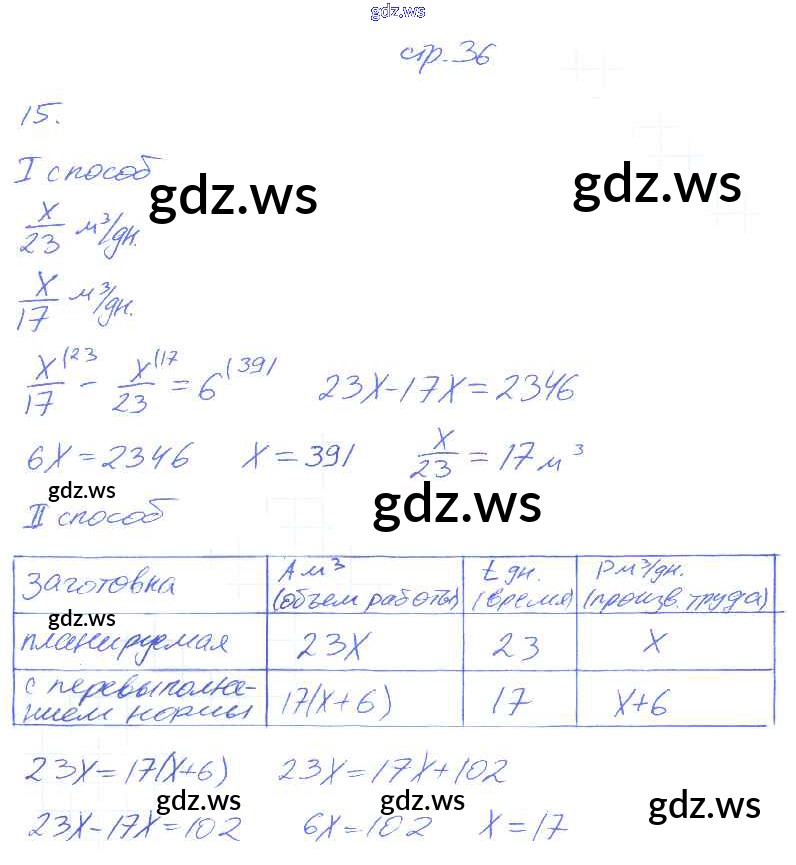 gdz.ws
стр. 36
15.
I способ
gdz.ws gdz.ws
x/23 м³/дн.
x/17 м³/дн.
x/17 (23 - x/23 (17 = 6 (391 23x-17x=2346
6x=2346 x=391 x/23 = 17 м³
gdz.ws gdz.ws
II способ
заготовка A м³ (объем работы) t дн. (время) P м³/дн. (произв. труда)
gdz.ws
планируемая 23x 23 x
с перевыполне-
нием нормы 17(x+6) 17 x+6
23x=17(x+6) 23x=17x+102
gdz.ws gdz.ws gdz.ws
23x-17x=102 6x=102 x=17